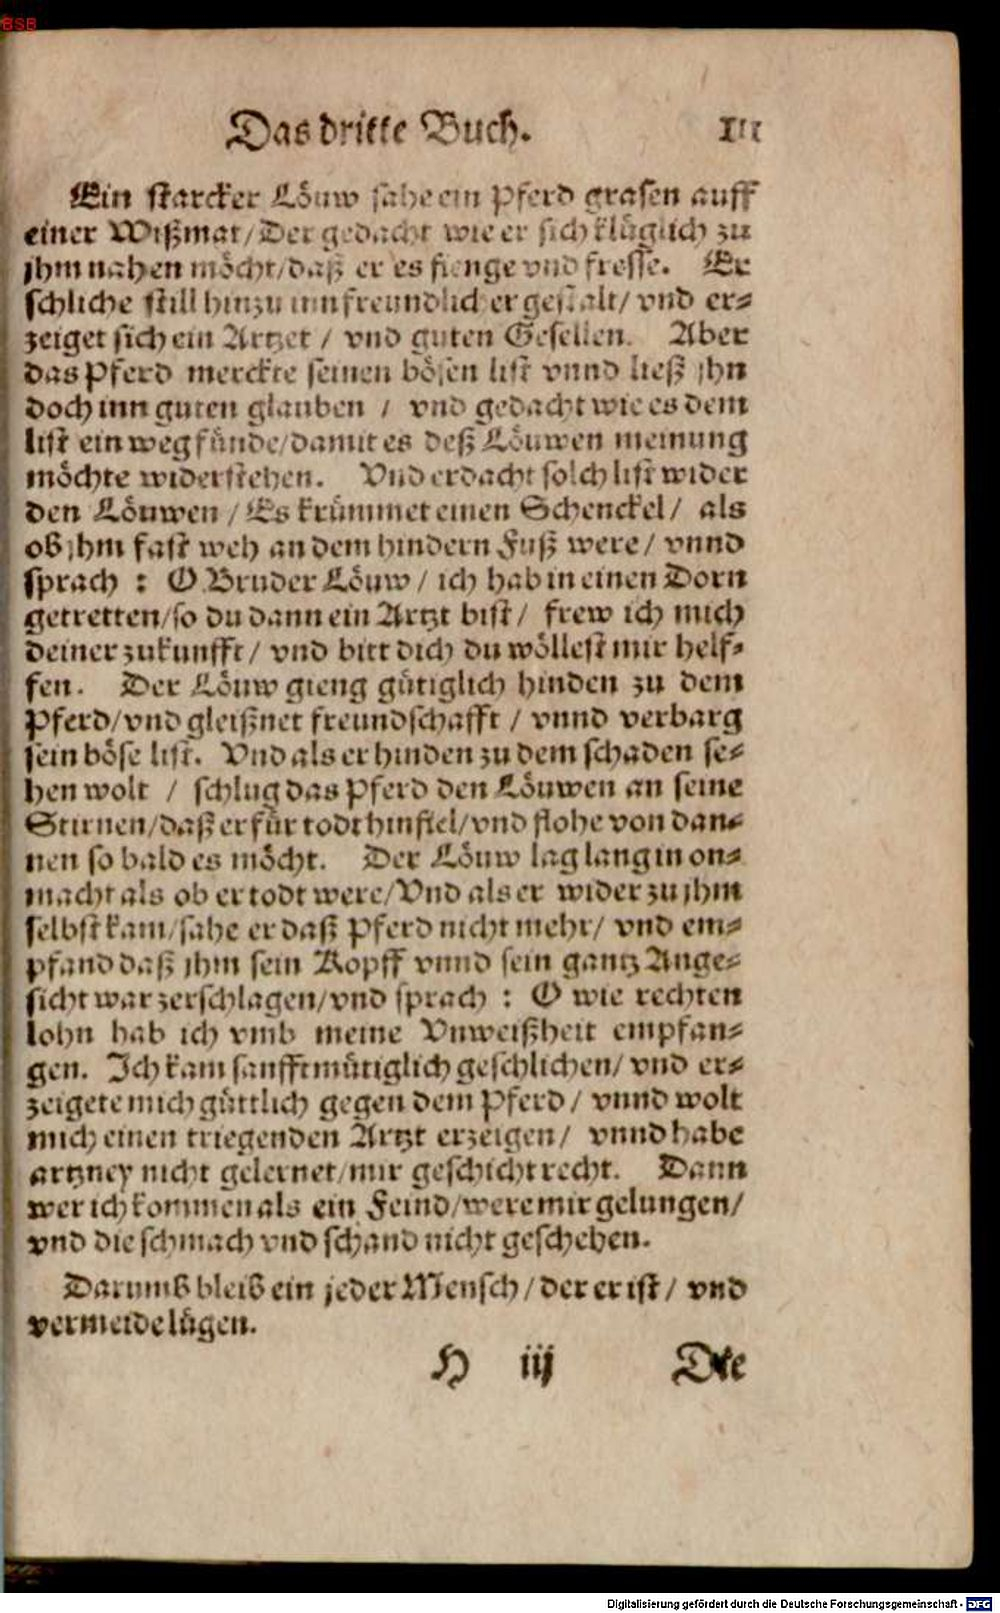 BSB
Das dritte Buch. 111
Ein starcker Löuw sahe ein Pferd grasen auff
einer Wißmat/ Der gedacht wie er sich klüglich zu
jhm nahen möcht/ daß er es fienge vnd fresse. Er
schliche still hinzu inn freundlicher gestalt/ vnd er-
zeiget sich ein Artzet / vnd guten Gesellen. Aber
das Pferd merckte seinen bösen list vnnd ließ jhn
doch inn guten glauben / vnd gedacht wie es dem
list ein weg fünde/ damit es deß Löuwen meinung
möchte widerstehen. Vnd erdacht solch list wider
den Löuwen / Es krümmet einen Schenckel / als
ob jhm fast weh an dem hindern Fuß were / vnnd
sprach : O Bruder Löuw / ich hab in einen Dorn
getretten/ so du dann ein Artzt bist / frew ich mich
deiner zukunfft / vnd bitt dich du wöllest mir helf-
fen. Der Löuw gieng gütiglich hinden zu dem
Pferd/ vnd gleißnet freundschafft / vnnd verbarg
sein böse list. Vnd als er hinden zu dem schaden se-
hen wolt / schlug das Pferd den Löuwen an seine
Stirnen/ daß er für todt hinfiel/ vnd flohe von dan-
nen so bald es möcht. Der Löuw lag lang in on-
macht als ob er todt were/ Vnd als er wider zu jhm
selbst kam/ sahe er daß Pferd nicht mehr/ vnd em-
pfand daß jhm sein Kopff vnnd sein gantz Ange-
sicht war zerschlagen/ vnd sprach : O wie rechten
lohn hab ich vmb meine Vnweißheit empfan-
gen. Ich kam sanfftmütiglich geschlichen/ vnd er-
zeigete mich güttlich gegen dem Pferd / vnnd wolt
mich einen triegenden Artzt erzeigen/ vnnd habe
artzney nicht gelernet/ mir geschicht recht. Dann
wer ich kommen als ein Feind/ were mir gelungen/
vnd die schmach vnd schand nicht geschehen.
Darumb bleib ein jeder Mensch / der er ist / vnd
vermeide lügen.
H iij Die
Digitalisierung gefördert durch die Deutsche Forschungsgemeinschaft - DFG